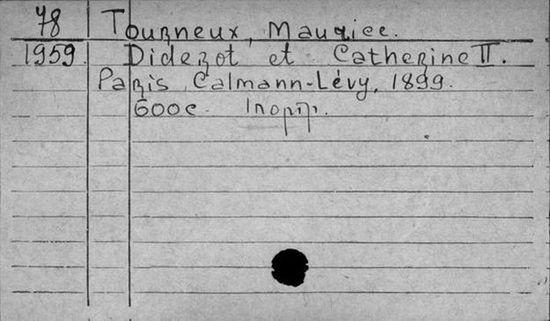 78 Tourneux, Maurice.
1959. Diderot et Catherine II.
Paris, Calmann-Lévy, 1899.
600c. 1 портр.